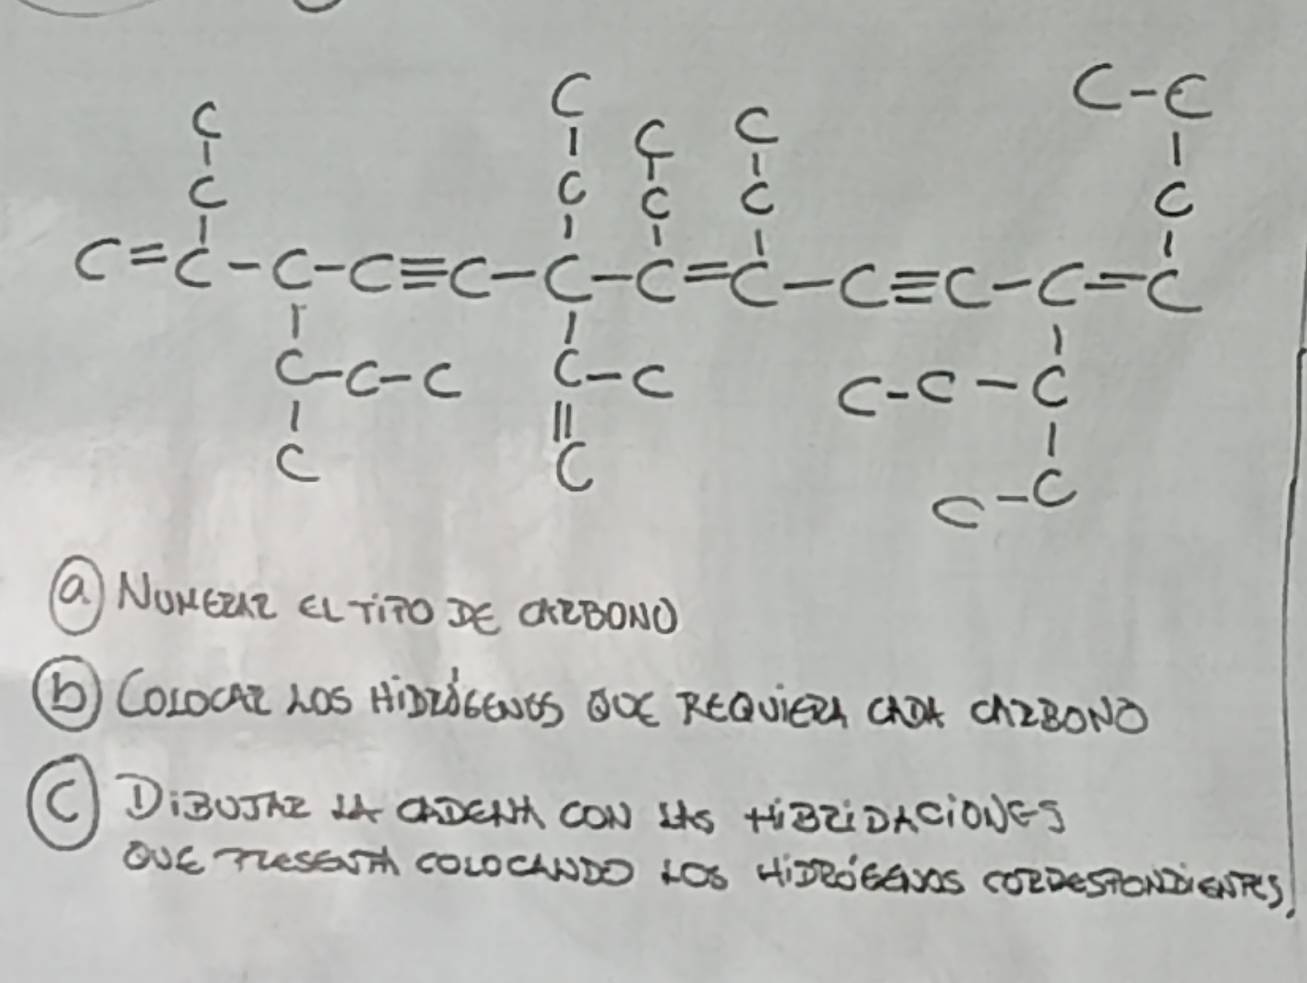 C-C
C
C
C
C
C
C
C
C
C
C=C-C-C≡C-C-C=C-C≡C-C=C
C-C-C
C-C
C-C-C
C
C
C-C
ⓐ NUMERAR EL TIPO DE CARBONO
ⓑ COLOCAR LOS HIDRÓGENOS QUE REQUIERA CADA CARBONO
ⓒ DIBUJAR LA CADENA CON LAS HIBRIDACIONES
QUE PRESENTA COLOCANDO LOS HIDRÓGENOS CORRESPONDIENTES,